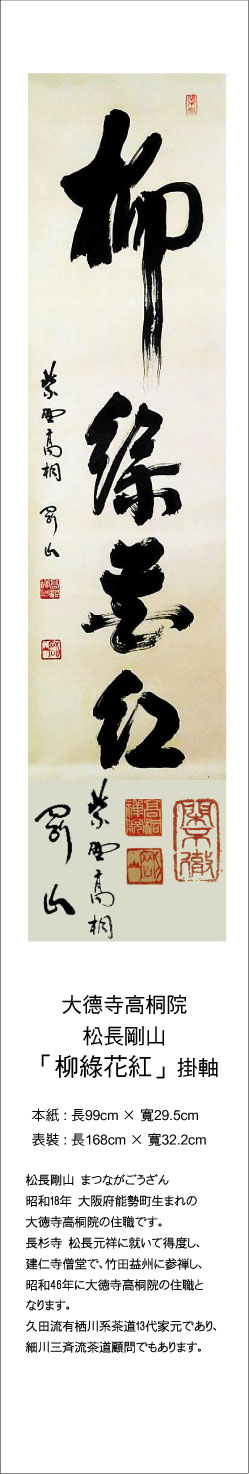 柳綠花紅
紫野高桐 剛山
紫野高桐
剛山
大德寺高桐院
松長剛山
「柳綠花紅」掛軸
本紙：長99cm × 寬29.5cm
表裝：長168cm × 寬32.2cm
松長剛山 まつながごうざん
昭和18年 大阪府能勢町生まれの
大徳寺高桐院の住職です。
長杉寺 松長元祥に就いて得度し、
建仁寺僧堂で、竹田益州に参禅し、
昭和46年に大徳寺高桐院の住職と
なります。
久田流有栖川系茶道13代家元であり、
細川三斉流茶道顧問でもあります。